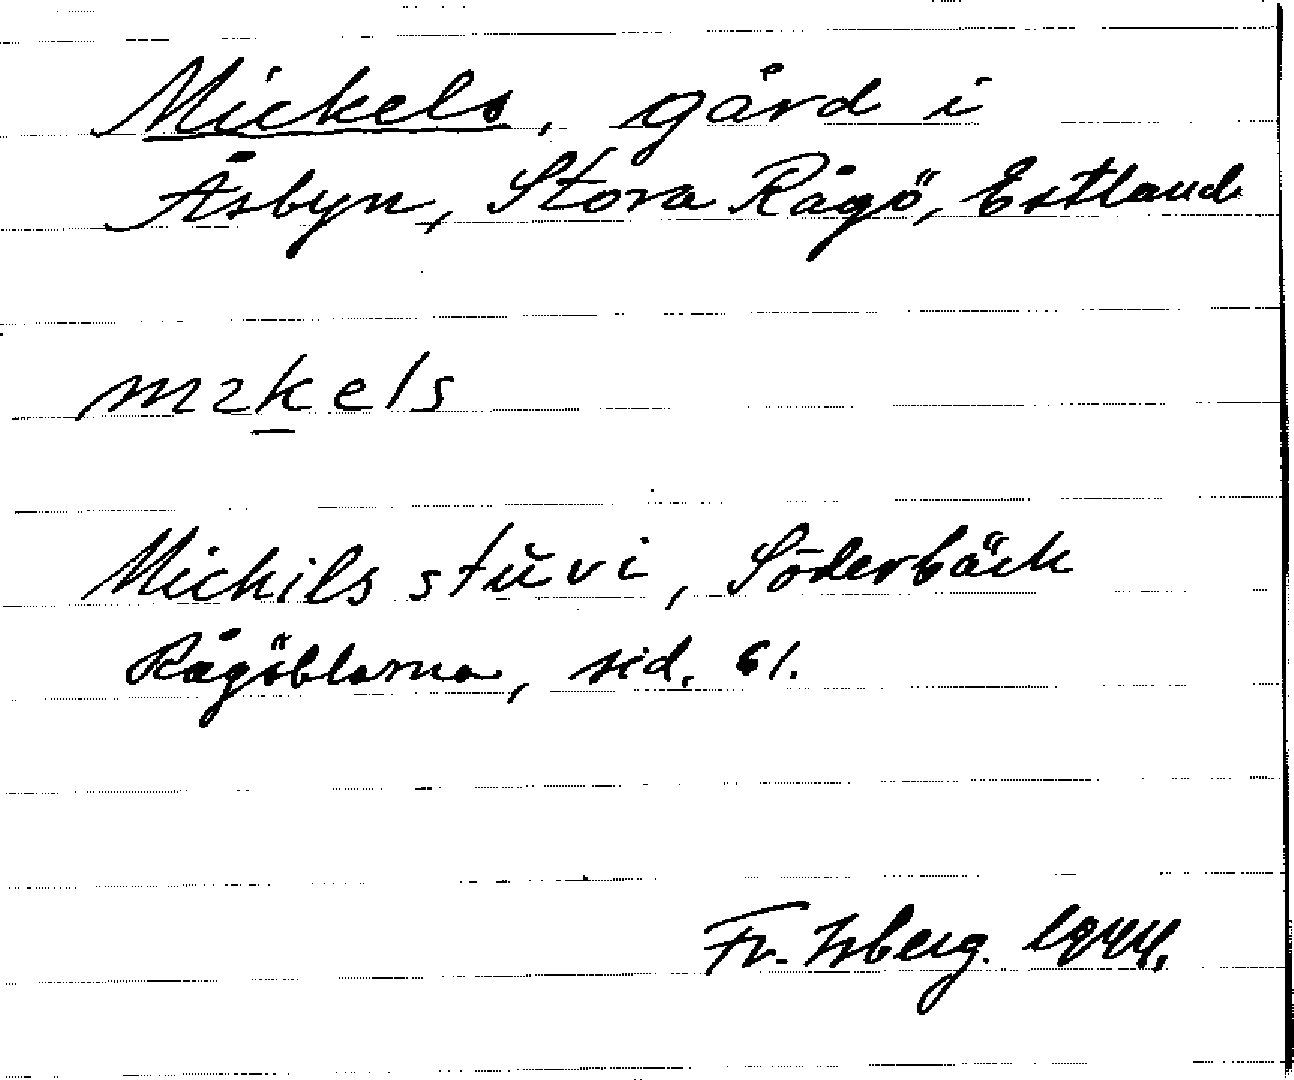 Mickels, gård i
Åsbyn, Stora Rågö, Estland
mɪkels
Mickils stŭvi, Söderbäck
Rågöblarna, sid. 61.
Fr. Isberg. 1944.